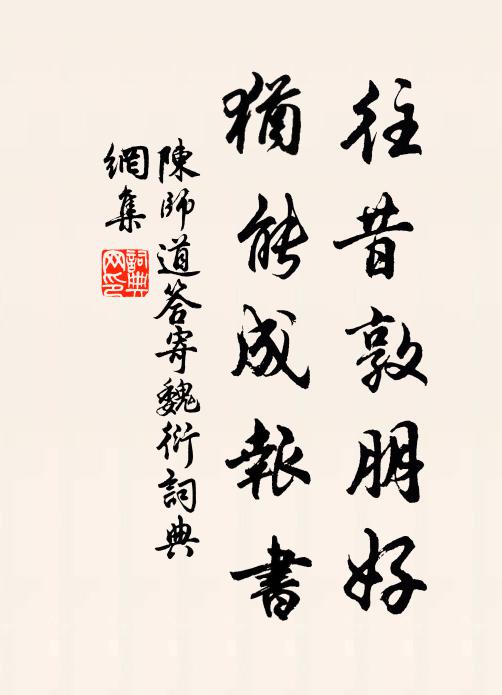 往昔敦朋好
猶能成報書
陳師道答寄魏衍詞典
網集
詞典
网印